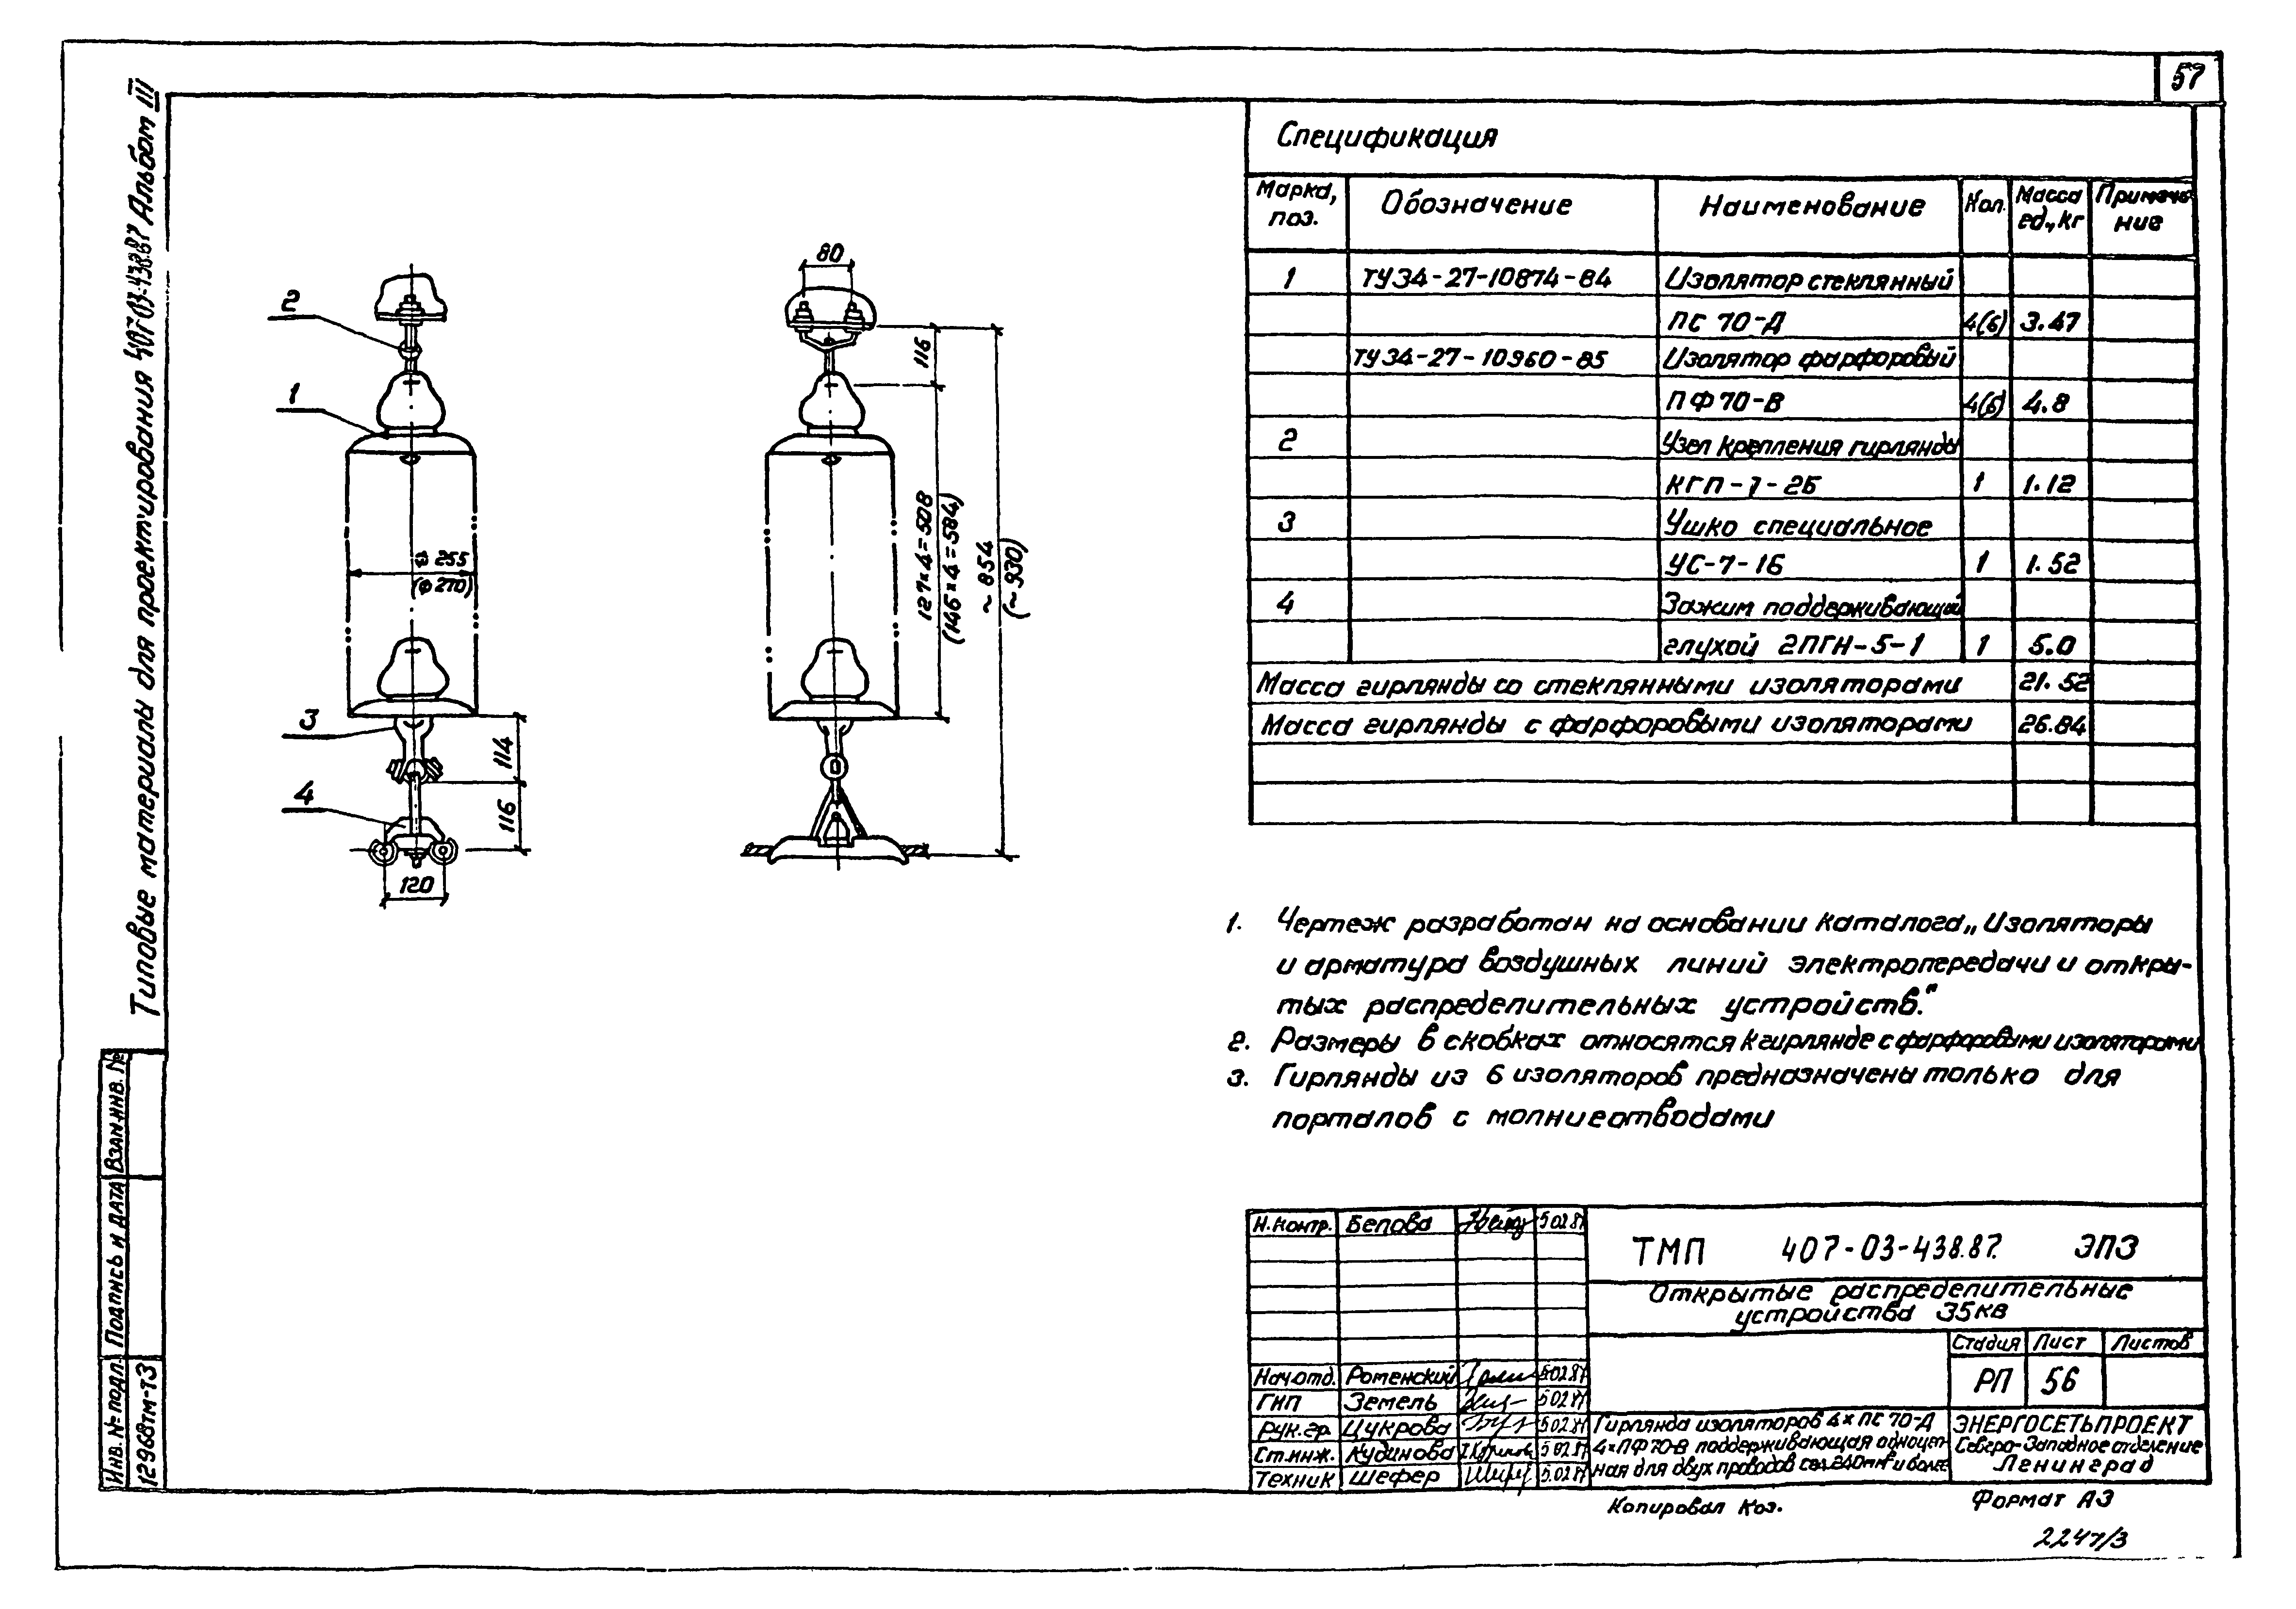 57
Типовые материалы для проектирования 407-03-438.87 Альбом III
Спецификация
Марка, поз. Обозначение Наименование Кол. Масса ед., кг Примечание
1 ТУ34-27-10874-84 Изолятор стеклянный
ПС 70-Д 4(6) 3.47
ТУ34-27-10960-85 Изолятор фарфоровый
ПФ70-В 4(6) 4.8
2 Узел крепления гирлянды
КГП-7-2Б 1 1.12
3 Ушко специальное
УС-7-16 1 1.52
4 Зажим поддерживающий
глухой 2ПГН-5-1 1 5.0
Масса гирлянды со стеклянными изоляторами 21.52
Масса гирлянды с фарфоровыми изоляторами 26.84
2
1
3
4
ø 255
(ф 270)
114
116
120
80
116
127×4=508
(146×4=584)
~854
(~930)
1. Чертеж разработан на основании каталога „Изоляторы
и арматура воздушных линий электропередачи и откры-
тых распределительных устройств."
2. Размеры в скобках относятся к гирлянде с фарфоровыми изоляторами
3. Гирлянды из 6 изоляторов предназначены только для
порталов с молниеотводами
Н.контр. Белова 5.02.87
ТМП 407-03-438.87. ЭПЗ
Открытые распределительные
устройства 35кв
Стадия Лист Листов
РП 56
Нач.отд. Роменский 5.02.87
ГИП Земель 5.02.87
Рук.гр. Цукрова 5.02.87
Ст.инж. Кудинова 5.02.87
Техник Шефер 5.02.87
Гирлянда изоляторов 4×ПС 70-Д
4×ПФ70-В поддерживающая одноцеп-
ная для двух проводов сеч. 240мм² и более
ЭНЕРГОСЕТЬПРОЕКТ
Северо-Западное отделение
Ленинград
Копировал Коз.
Формат А3
2247/3
Взам.инв. №
Подпись и дата
Инв. № подл.
12968тм-т3